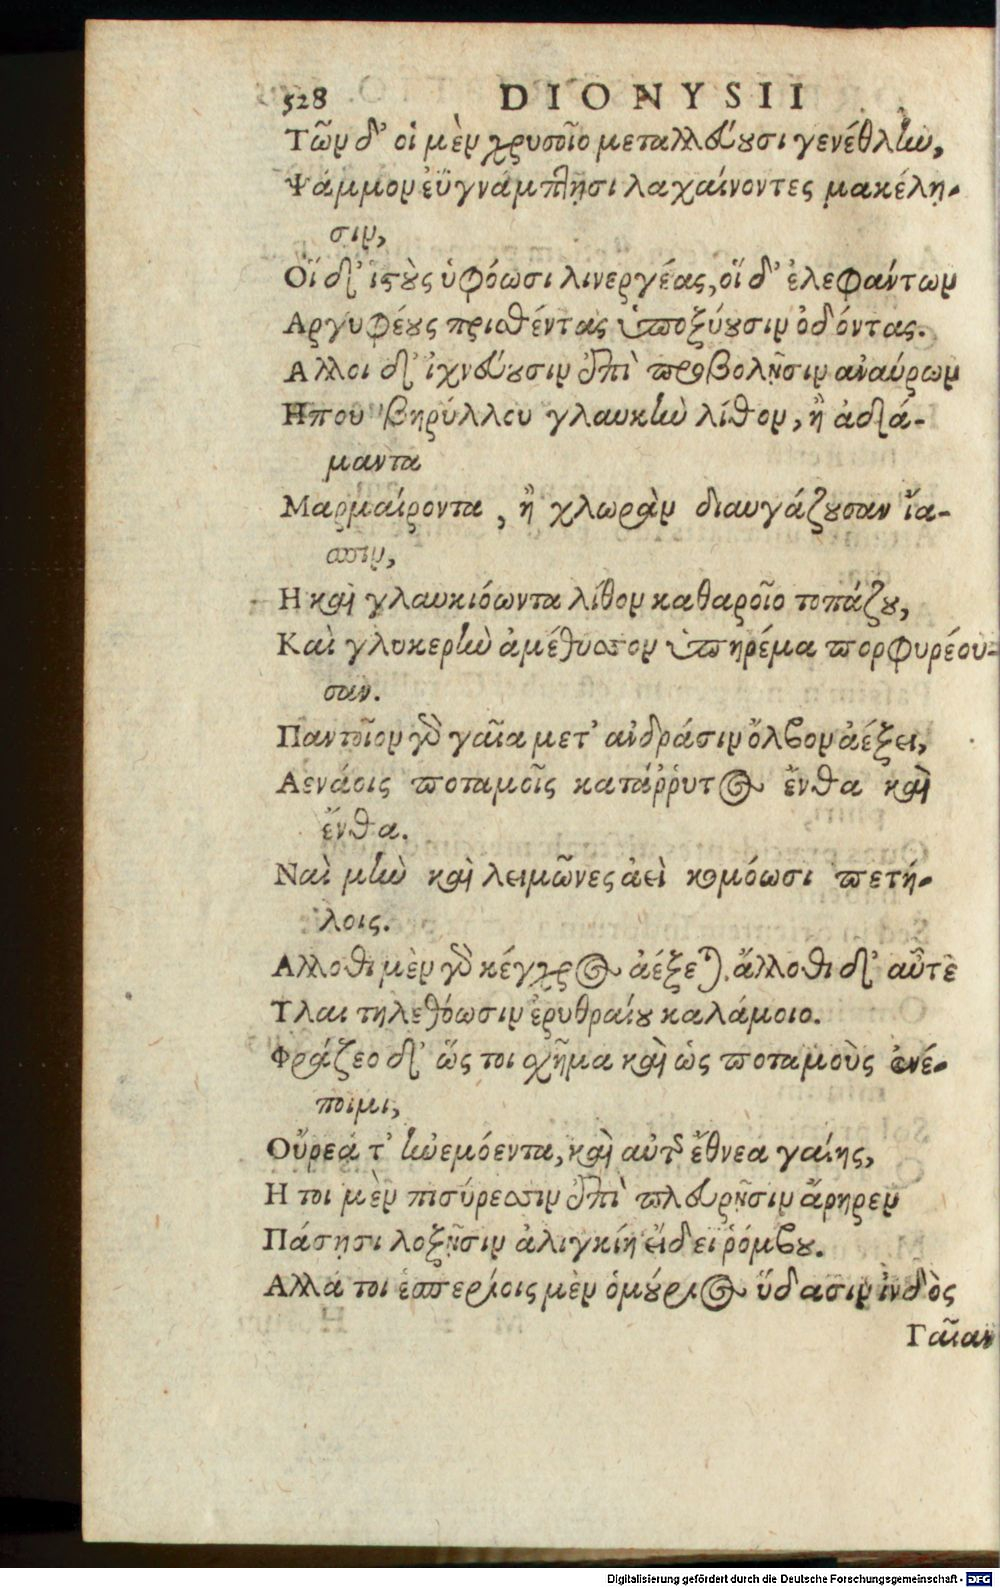 528 DIONYSII
Τῶν δ' οἱ μὲν χρυσοῖο μεταλλεύουσι γενέθλην,
Ψάμμον ἐϋγνάμπῃσι λαχαίνοντες μακέλῃ-
σιν,
Οἵ δ' ἱστοὺς ὑφόωσι λινεργέας, οἵ δ' ἐλεφάντων
Αργυφέους πρισθέντας ὑποξύουσιν ὀδόντας.
Αλλοι δ' ἰχνεύουσιν ἐπὶ προβολῇσιν ἀναύρων
Ηπου βηρύλλου γλαυκὴν λίθον, ἢ ἀδά-
μαντα
Μαρμαίροντα, ἢ χλωρὰν διαυγάζουσαν ἴα-
σπιν,
Η καὶ γλαυκιόωντα λίθον καθαροῖο τοπάζου,
Καὶ γλυκερὴν ἀμέθυστον ὑπηρέμα πορφυρέου-
σαν.
Παντοῖον γὸ γαῖα μετ' ἀνδράσιν ὄλβον ἀέξει,
Αενάοις ποταμοῖς κατάῤῥυτος ἔνθα καὶ
ἔνθα.
Ναὶ μὴν καὶ λειμῶνες ἀεὶ κομόωσι πετή-
λοις.
Αλλοθι μὲν γὸ κέγχρος ἀέξεται, ἄλλοθι δ' αὖτε
Υλαι τηλεθόωσιν ἐρυθραίου καλάμοιο.
Φράζεο δ' ὥς τοι σχῆμα καὶ ὡς ποταμοὺς ἐνέ-
ποιμι,
Οὔρεά τ' ἠνεμόεντα, καὶ αὐτῆς ἔθνεα γαίης,
Η τοι μὲν πισύρεσσιν ἐπὶ πλευρῇσιν ἄρηρεν
Πάσῃσι λοξῇσιν ἀλιγκίη εἴδεϊ ῥόμβου.
Αλλά τοι ἑσπερίοις μὲν ὁμούριος ὕδασιν ἰνδὸς
Γαῖαν
Digitalisierung gefördert durch die Deutsche Forschungsgemeinschaft - DFG